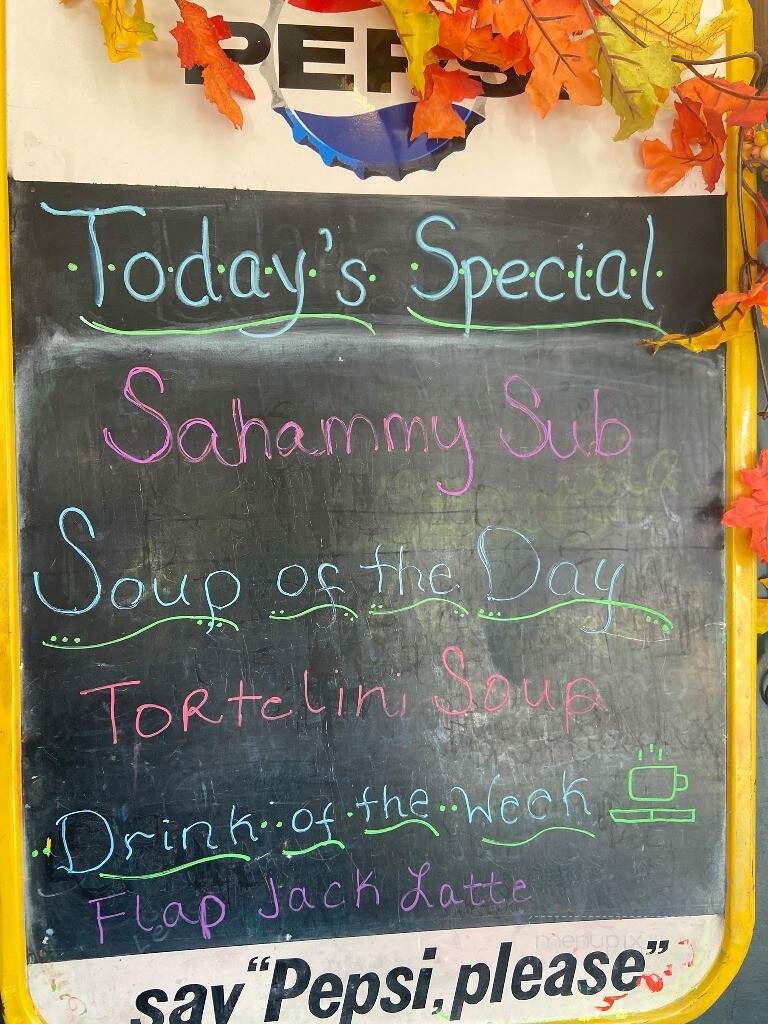 PEPSI
Today's Special
Sahammy Sub
Soup of the Day
Tortelini Soup
Drink of the Week
Flap Jack Latte
menupix
say "Pepsi, please"